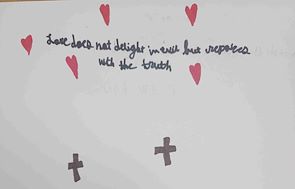 Love does not delight in evil but rejoices
with the truth